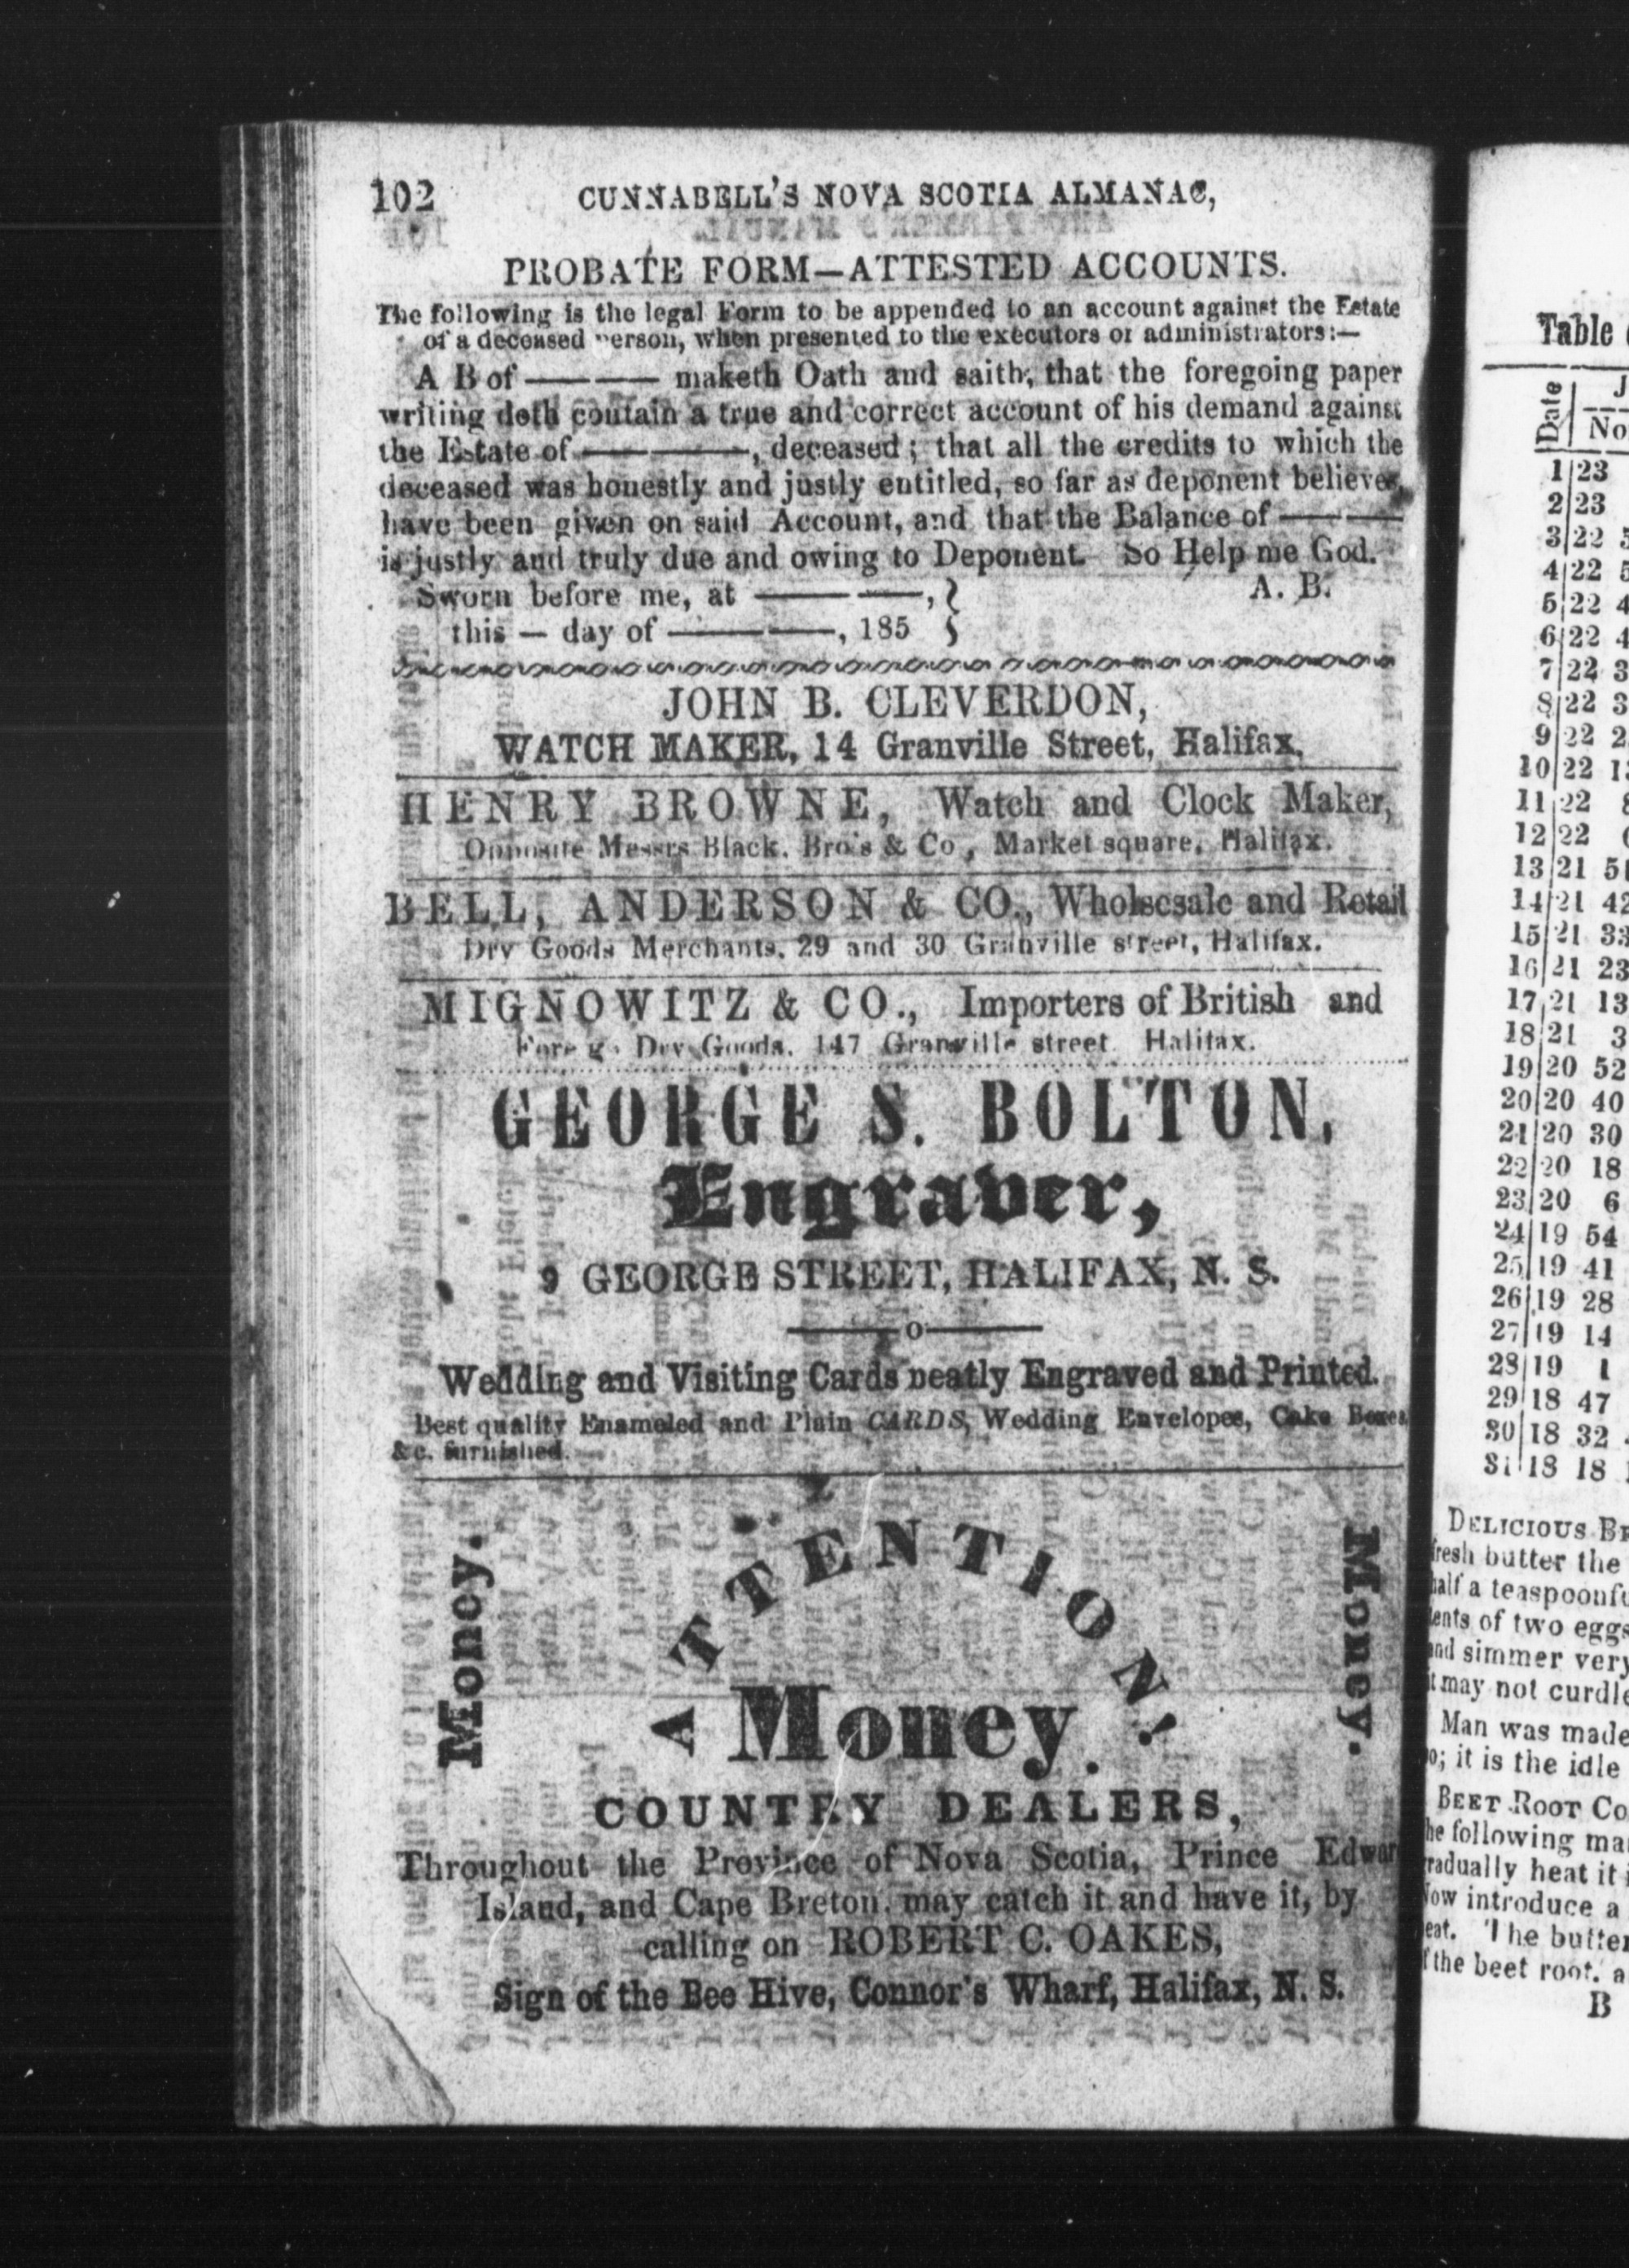 102 CUNNABELL'S NOVA SCOTIA ALMANAC,
PROBATE FORM—ATTESTED ACCOUNTS.
The following is the legal Form to be appended to an account against the Estate
of a deceased person, when presented to the executors or administrators:—
A B of ——— maketh Oath and saith, that the foregoing paper
writing doth contain a true and correct account of his demand against
the Estate of ———, deceased; that all the credits to which the
deceased was honestly and justly entitled, so far as deponent believes,
have been given on said Account, and that the Balance of ———
is justly and truly due and owing to Deponent. So Help me God.
Sworn before me, at ———, } A. B.
this — day of ———, 185 }
JOHN B. CLEVERDON,
WATCH MAKER, 14 Granville Street, Halifax,
HENRY BROWNE, Watch and Clock Maker,
Opposite Messrs Black, Bro's & Co, Market square, Halifax.
BELL, ANDERSON & CO., Wholsesale and Retail
Dry Goods Merchants, 29 and 30 Granville street, Halifax.
MIGNOWITZ & CO., Importers of British and
Foreign Dry Goods, 147 Granville street Halifax.
GEORGE S. BOLTON,
Engraver,
9 GEORGE STREET, HALIFAX, N. S.
Wedding and Visiting Cards neatly Engraved and Printed.
Best quality Enameled and Plain CARDS, Wedding Envelopes, Cake Boxes
&c. furnished.
Money.
ATTENTION!
Money.
Money.
COUNTRY DEALERS,
Throughout the Province of Nova Scotia, Prince Edwar
Island, and Cape Breton, may catch it and have it, by
calling on ROBERT C. OAKES,
Sign of the Bee Hive, Connor's Wharf, Halifax, N. S.
Table
Date J
No
1 23
2 23
3 22 5
4 22 5
5 22 4
6 22 4
7 22 3
8 22 3
9 22 2
10 22 1
11 22
12 22
13 21 51
14 21 42
15 21 33
16 21 23
17 21 13
18 21 3
19 20 52
20 20 40
21 20 30
22 20 18
23 20 6
24 19 54
25 19 41
26 19 28
27 19 14
28 19 1
29 18 47
30 18 32
31 18 18
DELICIOUS
fresh butter the
half a teaspoonfu
tents of two eggs
and simmer very
it may not curdle
Man was made
; it is the idle
BEET ROOT Co
he following ma
radually heat it
low introduce a
eat. The butter
f the beet root, a
B